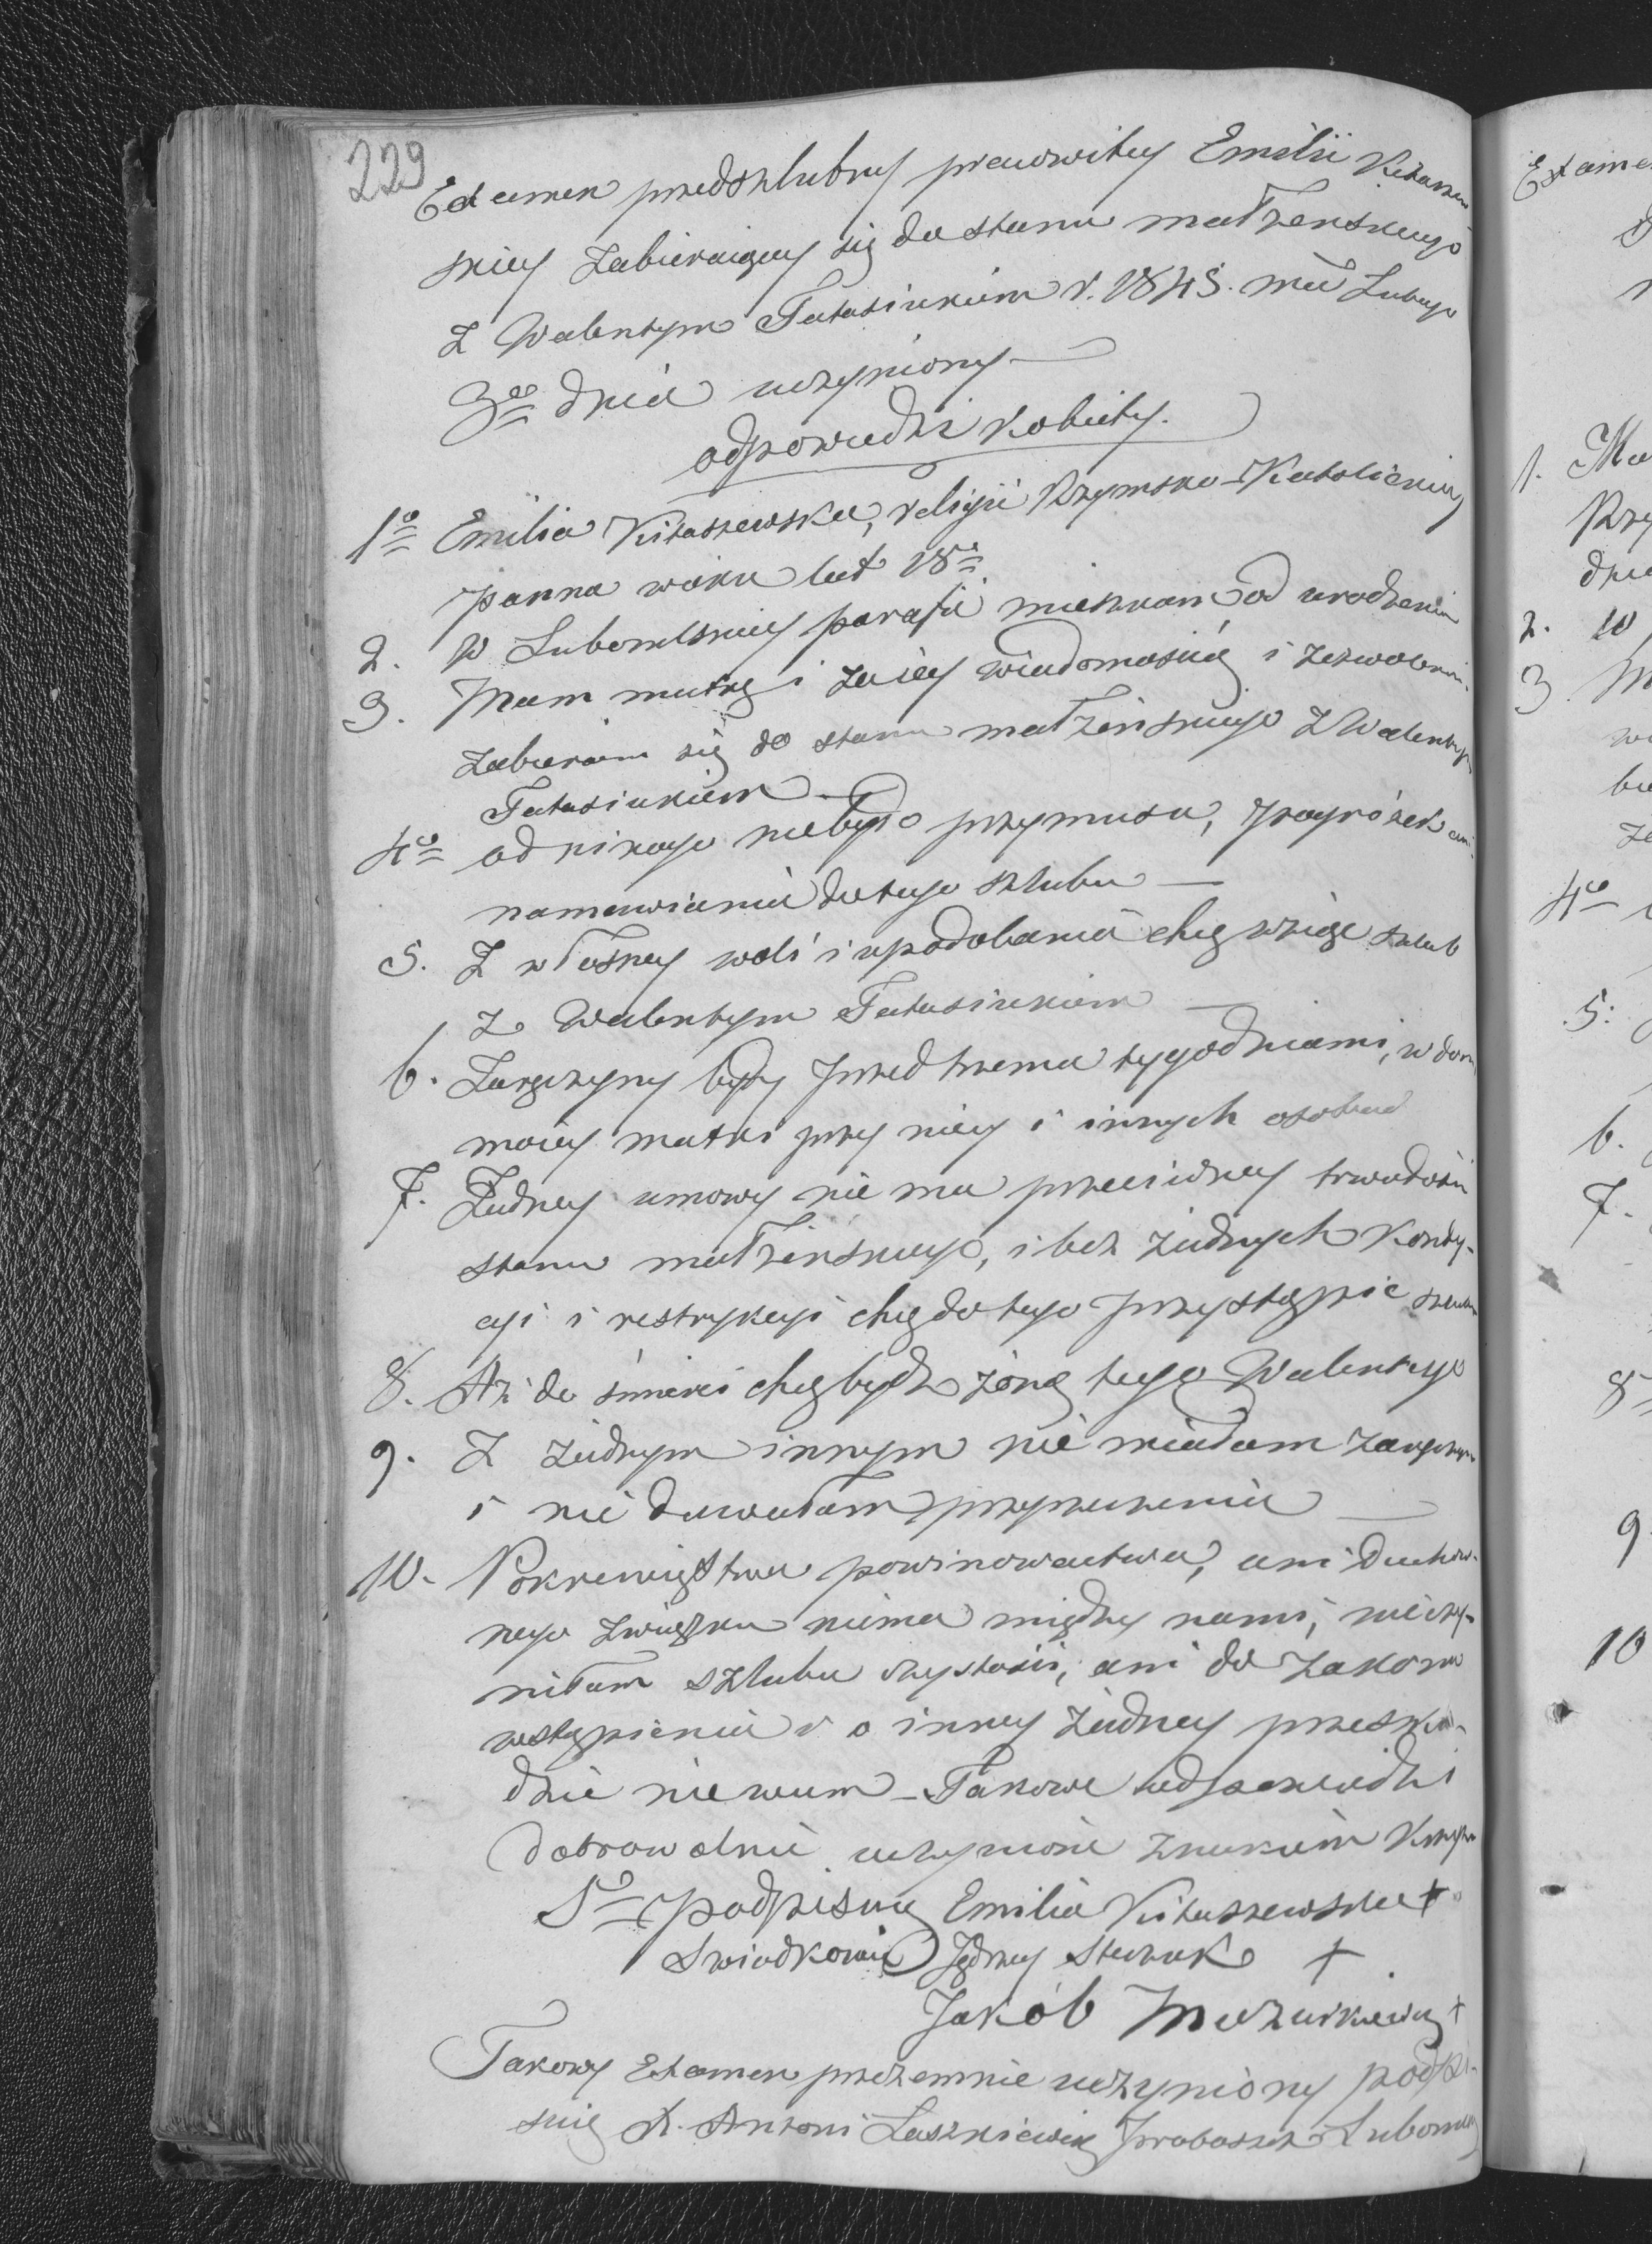 229
Examen przedszlubny pracowitey Emilii Kitaszew
skiey zabieraiącey się do stanu małżenskiego
z Walentym Tatasiukiem r. 1845. mca Lutego
3go dnia uczyniony —
odpowiedzi kobiety.
1o Emilia Kitaszewska, religii Rzymsko-Katolickiey
panna wieku lat 18
2. W Lubomlskiey parafii mieszkam od urodzenia
3. Mam matkę i za iey wiadomością i zezwoleni-
zabieram się do stanu małżeńskiego z Walentym
Tatasiukiem —
4o od nikogo niebyło przymusu, pogróżek ani
namawiania do tego szlubu —
5. Z własney woli i upodobania chcę wziąść szlub
z Walentym Tatasiukiem —
6. Zaręczyny były przed trzema tygodniami, w dom
moiey matki przy niey i innych osobach
7. Żadney umowy nie ma przeciwney trwałości
stanu małżeńskiego, i bez żadnych kondy-
cyi i restrykcyi chcę do tego przystąpić szlubu
8. Aż do śmierci chcę bydź żoną tego Walentego
9. Z żadnym innym nie miałam zaręczyn
i nie dawałam przyrzeczenia —
10. Pokrewieństwa powinowactwa, ani duchow-
nego związku niema między nami, nieczy-
niłam szlubu czystości, ani do zakonu
wstąpienia i o inney żadney przeszko-
dzie niewiem — Takowe odpowiedzi
dobrowolnie uczynione znakiem krzyża
So podpisuię Emilia Kitaszewska +
Swiadkowie Jędrzey Stewak +
Jakób Mazurkiewicz +
Takowy Examen przezemnie uczyniony podpi-
suię X. Antoni Laszkiewicz Proboszcz Lubomls
Examen
1. Ma
Rzy
dni
2. W
3 M
wi
bie
ze
4o
5.
6.
7.
8
9
10